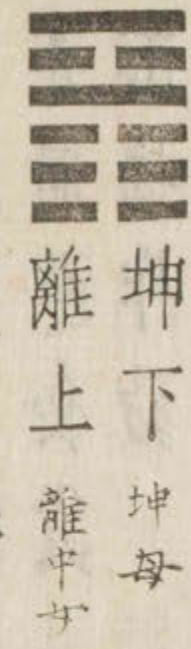 坤下 坤母
離上 離中女